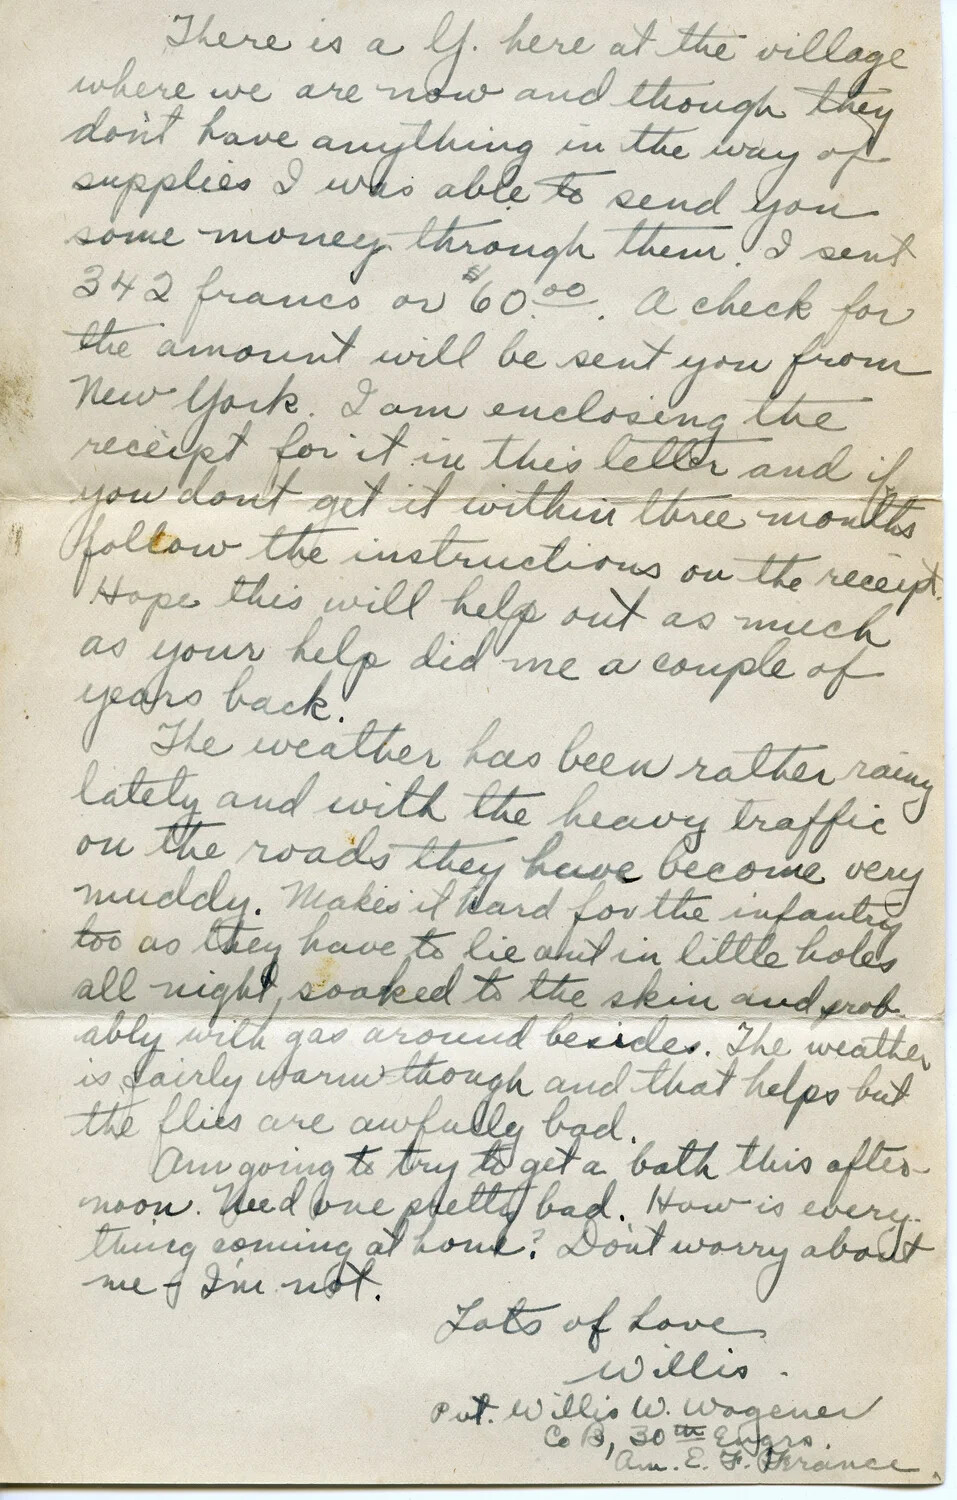 There is a Y. here at the village
where we are now and though they
don't have anything in the way of
supplies I was able to send you
some money through them. I sent
342 francs or $60.00. A check for
the amount will be sent you from
New York. I am enclosing the
receipt for it in this letter and if
you dont get it within three months
follow the instructions on the receipt.
Hope this will help out as much
as your help did me a couple of
years back.
The weather has been rather rainy
lately and with the heavy traffic
on the roads they have become very
muddy. Makes it hard for the infantry
too as they have to lie out in little holes
all night, soaked to the skin and prob-
ably with gas around besides. The weather
is fairly warm though and that helps but
the flies are awfully bad.
Am going to try to get a bath this after-
noon. Need one pretty bad. How is every-
thing coming at home? Don't worry about
me - I'm not.
Lots of Love
Willis.
Pvt. Willis W. Wagener
Co B, 30th Engrs.
Am. E. F. France